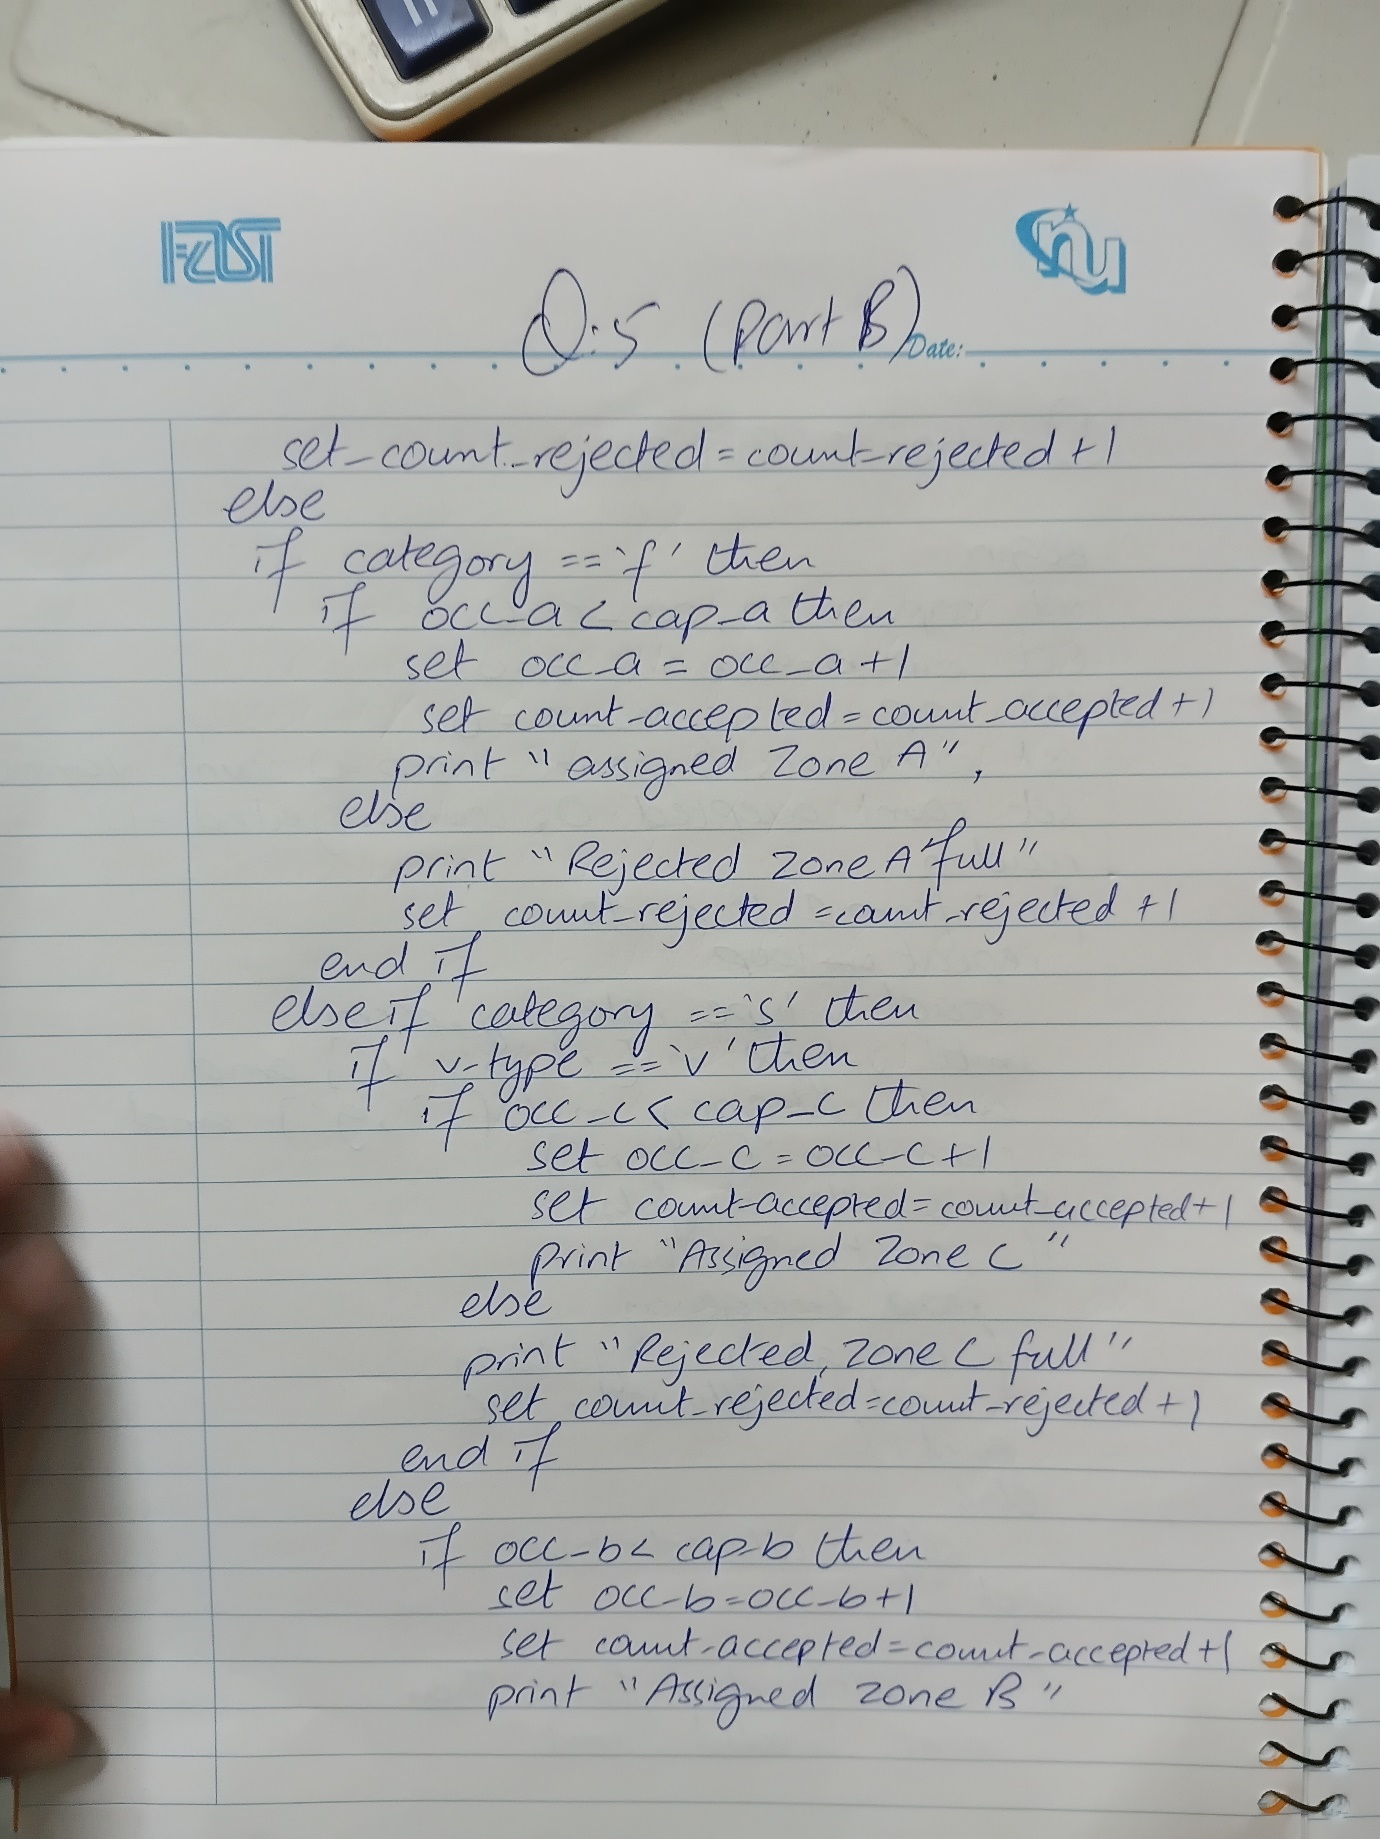 FAST
nu
Q:5 (Part B)
Date:
set-count-rejected = count-rejected + 1
else
if category == 'f' then
if occ-a < cap-a then
set occ-a = occ-a + 1
set count-accepted = count-accepted + 1
print "assigned Zone A",
else
print "Rejected zone A full"
set count-rejected = count-rejected + 1
end if
else if category == 's' then
if v-type == 'v' then
if occ-c < cap-c then
set occ-c = occ-c + 1
set count-accepted = count-accepted + 1
print "Assigned Zone C"
else
print "Rejected, Zone C full"
set count-rejected = count-rejected + 1
end if
else
if occ-b < cap-b then
set occ-b = occ-b + 1
set count-accepted = count-accepted + 1
print "Assigned zone B"